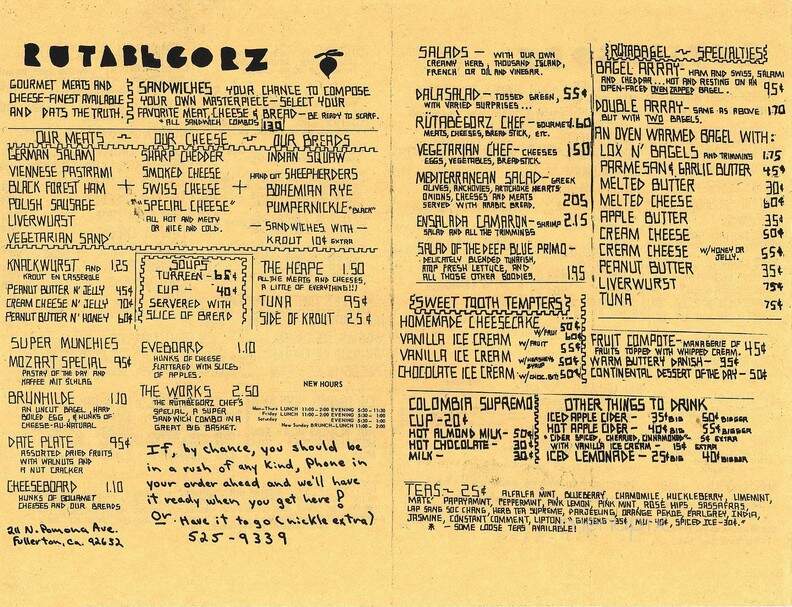 RÜTABEGORZ
GOURMET MEATS AND
CHEESE-FINEST AVAILABLE
AND DATS THE TRUTH.
SANDWICHES YOUR CHANCE TO COMPOSE
YOUR OWN MASTERPIECE - SELECT YOUR
FAVORITE MEAT, CHEESE & BREAD - BE READY TO SCARF.
* ALL SANDWICH COMBOS 1.30
OUR MEATS ~ OUR CHEESE ~ OUR BREADS
GERMAN SALAMI SHARP CHEDDER INDIAN SQUAW
VIENNESE PASTRAMI SMOKED CHEESE HAND CUT SHEEPHERDERS
BLACK FOREST HAM + SWISS CHEESE + BOHEMIAN RYE
POLISH SAUSAGE "SPECIAL CHEESE" PUMPERNICKLE "BLACK"
LIVERWURST ALL HOT AND MELTY - SANDWICHES WITH -
VEGETARIAN SAND' OR NICE AND COLD. KROUT 10¢ EXTRA
KNACKWURST AND 1.25
KROUT EN CASSEROLE
PEANUT BUTTER N' JELLY 45¢
CREAM CHEESE N' JELLY 70¢
PEANUT BUTTER N' HONEY 60¢
SOUPS
TURREEN - 65¢
CUP - 40¢
SERVERED WITH
SLICE OF BREAD
THE HEAPE 1.50
ALL THE MEATS AND CHEESES,
A LITTLE OF EVERYTHING!!)
TUNA 95¢
SIDE OF KROUT 25¢
SUPER MUNCHIES
MOZART SPECIAL 95¢
PASTRY OF THE DAY AND
KAFFEE MIT SCHLAG
BRUNHILDE 1.10
AN UNCUT BAGEL, HARD
BOILED EGG, & HUNKS OF
CHEESE-AU-NATURAL
DATE PLATE 95¢
ASSORTED DRIED FRUITS
WITH WALNUTS AND
A NUT CRACKER
CHEESEBOARD 1.10
HUNKS OF GOURMET
CHEESES AND OUR BREADS
EVEBOARD 1.10
HUNKS OF CHEESE
FLATTERED WITH SLICES
OF APPLES.
THE WORKS 2.50
THE RÜTABËGORZ CHEF'S
SPECIAL, A SUPER
SANDWICH COMBO IN A
GREAT BIG BASKET.
NEW HOURS
Mon-Thurs LUNCH 11:00-2:00 EVENING 5:30-11:30
Friday LUNCH 11:00-2:00 EVENING 5:30-1:00
Saturday EVENING 5:30-1:00
New Sunday BRUNCH-LUNCH 11:00-2:00
If, by chance, you should be
in a rush of any kind, Phone in
your order ahead and we'll have
it ready when you get here!
Or Have it to go (nickle extra)
525-9339
211 N. Pomona Ave.
Fullerton, Ca. 92632
SALADS - WITH OUR OWN
CREAMY HERB, THOUSAND ISLAND,
FRENCH OR OIL AND VINEGAR.
DALASALAD - TOSSED GREEN, 55¢
WITH VARIED SURPRISES...
RÜTABËGORZ CHEF - GOURMET 1.60
MEATS, CHEESES, BREAD STICK, ETC.
VEGETARIAN CHEF - CHEESES 1.50
EGGS, VEGETABLES, BREADSTICK.
MEDITERRANEAN SALAD - GREEK
OLIVES, ANCHOVIES, ARTICHOKE HEARTS
ONIONS, CHEESES AND MEATS
SERVED WITH ARABIC BREAD. 2.05
ENSALADA CAMARON - SHRIMP 2.15
SALAD AND ALL THE TRIMMINGS
SALAD OF THE DEEP BLUE PRIMO -
DELICATELY BLENDED TUNAFISH,
ATOP FRESH LETTUCE, AND
ALL THOSE OTHER GOODIES. 1.95
RÜTABAGEL ~ SPECIALTIES
BAGEL ARRAY - HAM AND SWISS, SALAMI
AND CHEDDAR... HOT AND RESTING ON AN
OPEN-FACED OVEN ZAPPED BAGEL. 95¢
DOUBLE ARRAY - SAME AS ABOVE 1.70
BUT WITH TWO BAGELS.
AN OVEN WARMED BAGEL WITH:
LOX N' BAGELS AND TRIMMINGS 1.75
PARMESAN & GARLIC BUTTER 45¢
MELTED BUTTER 30¢
MELTED CHEESE 60¢
APPLE BUTTER 35¢
CREAM CHEESE 50¢
CREAM CHEESE W/HONEY OR JELLY. 55¢
PEANUT BUTTER 35¢
LIVERWURST 75¢
TUNA 75¢
SWEET TOOTH TEMPTERS
HOMEMADE CHEESECAKE 50¢
W/FRUIT 60¢
VANILLA ICE CREAM W/FRUIT 55¢
VANILLA ICE CREAM W/HERSHEYS SYRUP 50¢
CHOCOLATE ICE CREAM W/CHOC. BITS 50¢
FRUIT COMPOTE - MANAGERIE OF 45¢
FRUITS TOPPED WITH WHIPPED CREAM.
WARM BUTTERY DANISH - 35¢
CONTINENTAL DESSERT OF THE DAY - 50¢
COLOMBIA SUPREMO
CUP - 20¢
HOT ALMOND MILK - 50¢
HOT CHOCOLATE - 30¢
MILK - 30¢
OTHER THINGS TO DRINK
ICED APPLE CIDER - 35¢ BIG 50¢ BIGGER
HOT APPLE CIDER - 40¢ BIG 55¢ BIGGER
* CIDER SPICED, CHERRIED, CINNAMONED - 5¢ EXTRA
WITH VANILLA ICE CREAM - 15¢ EXTRA
ICED LEMONADE - 25¢ BIG 40¢ BIGGER
TEAS - 25¢ ALFALFA MINT, BLUEBERRY, CHAMOMILE, HUCKLEBERRY, LIMEMINT,
MATE' PAPAYAMINT, PEPPERMINT, PINK LEMON, PINK MINT, ROSE HIPS, SASSAFRAS,
LAP SANG SOC CHANG, HERB TEA SUPREME, DARJEELING, ORANGE PEKOE, EARLGREY, INDIA,
JASMINE, CONSTANT COMMENT, LIPTON. * GINSENG-35¢, MU-40¢, SPICED ICE-30¢.*
* - SOME LOOSE TEAS AVAILABLE!